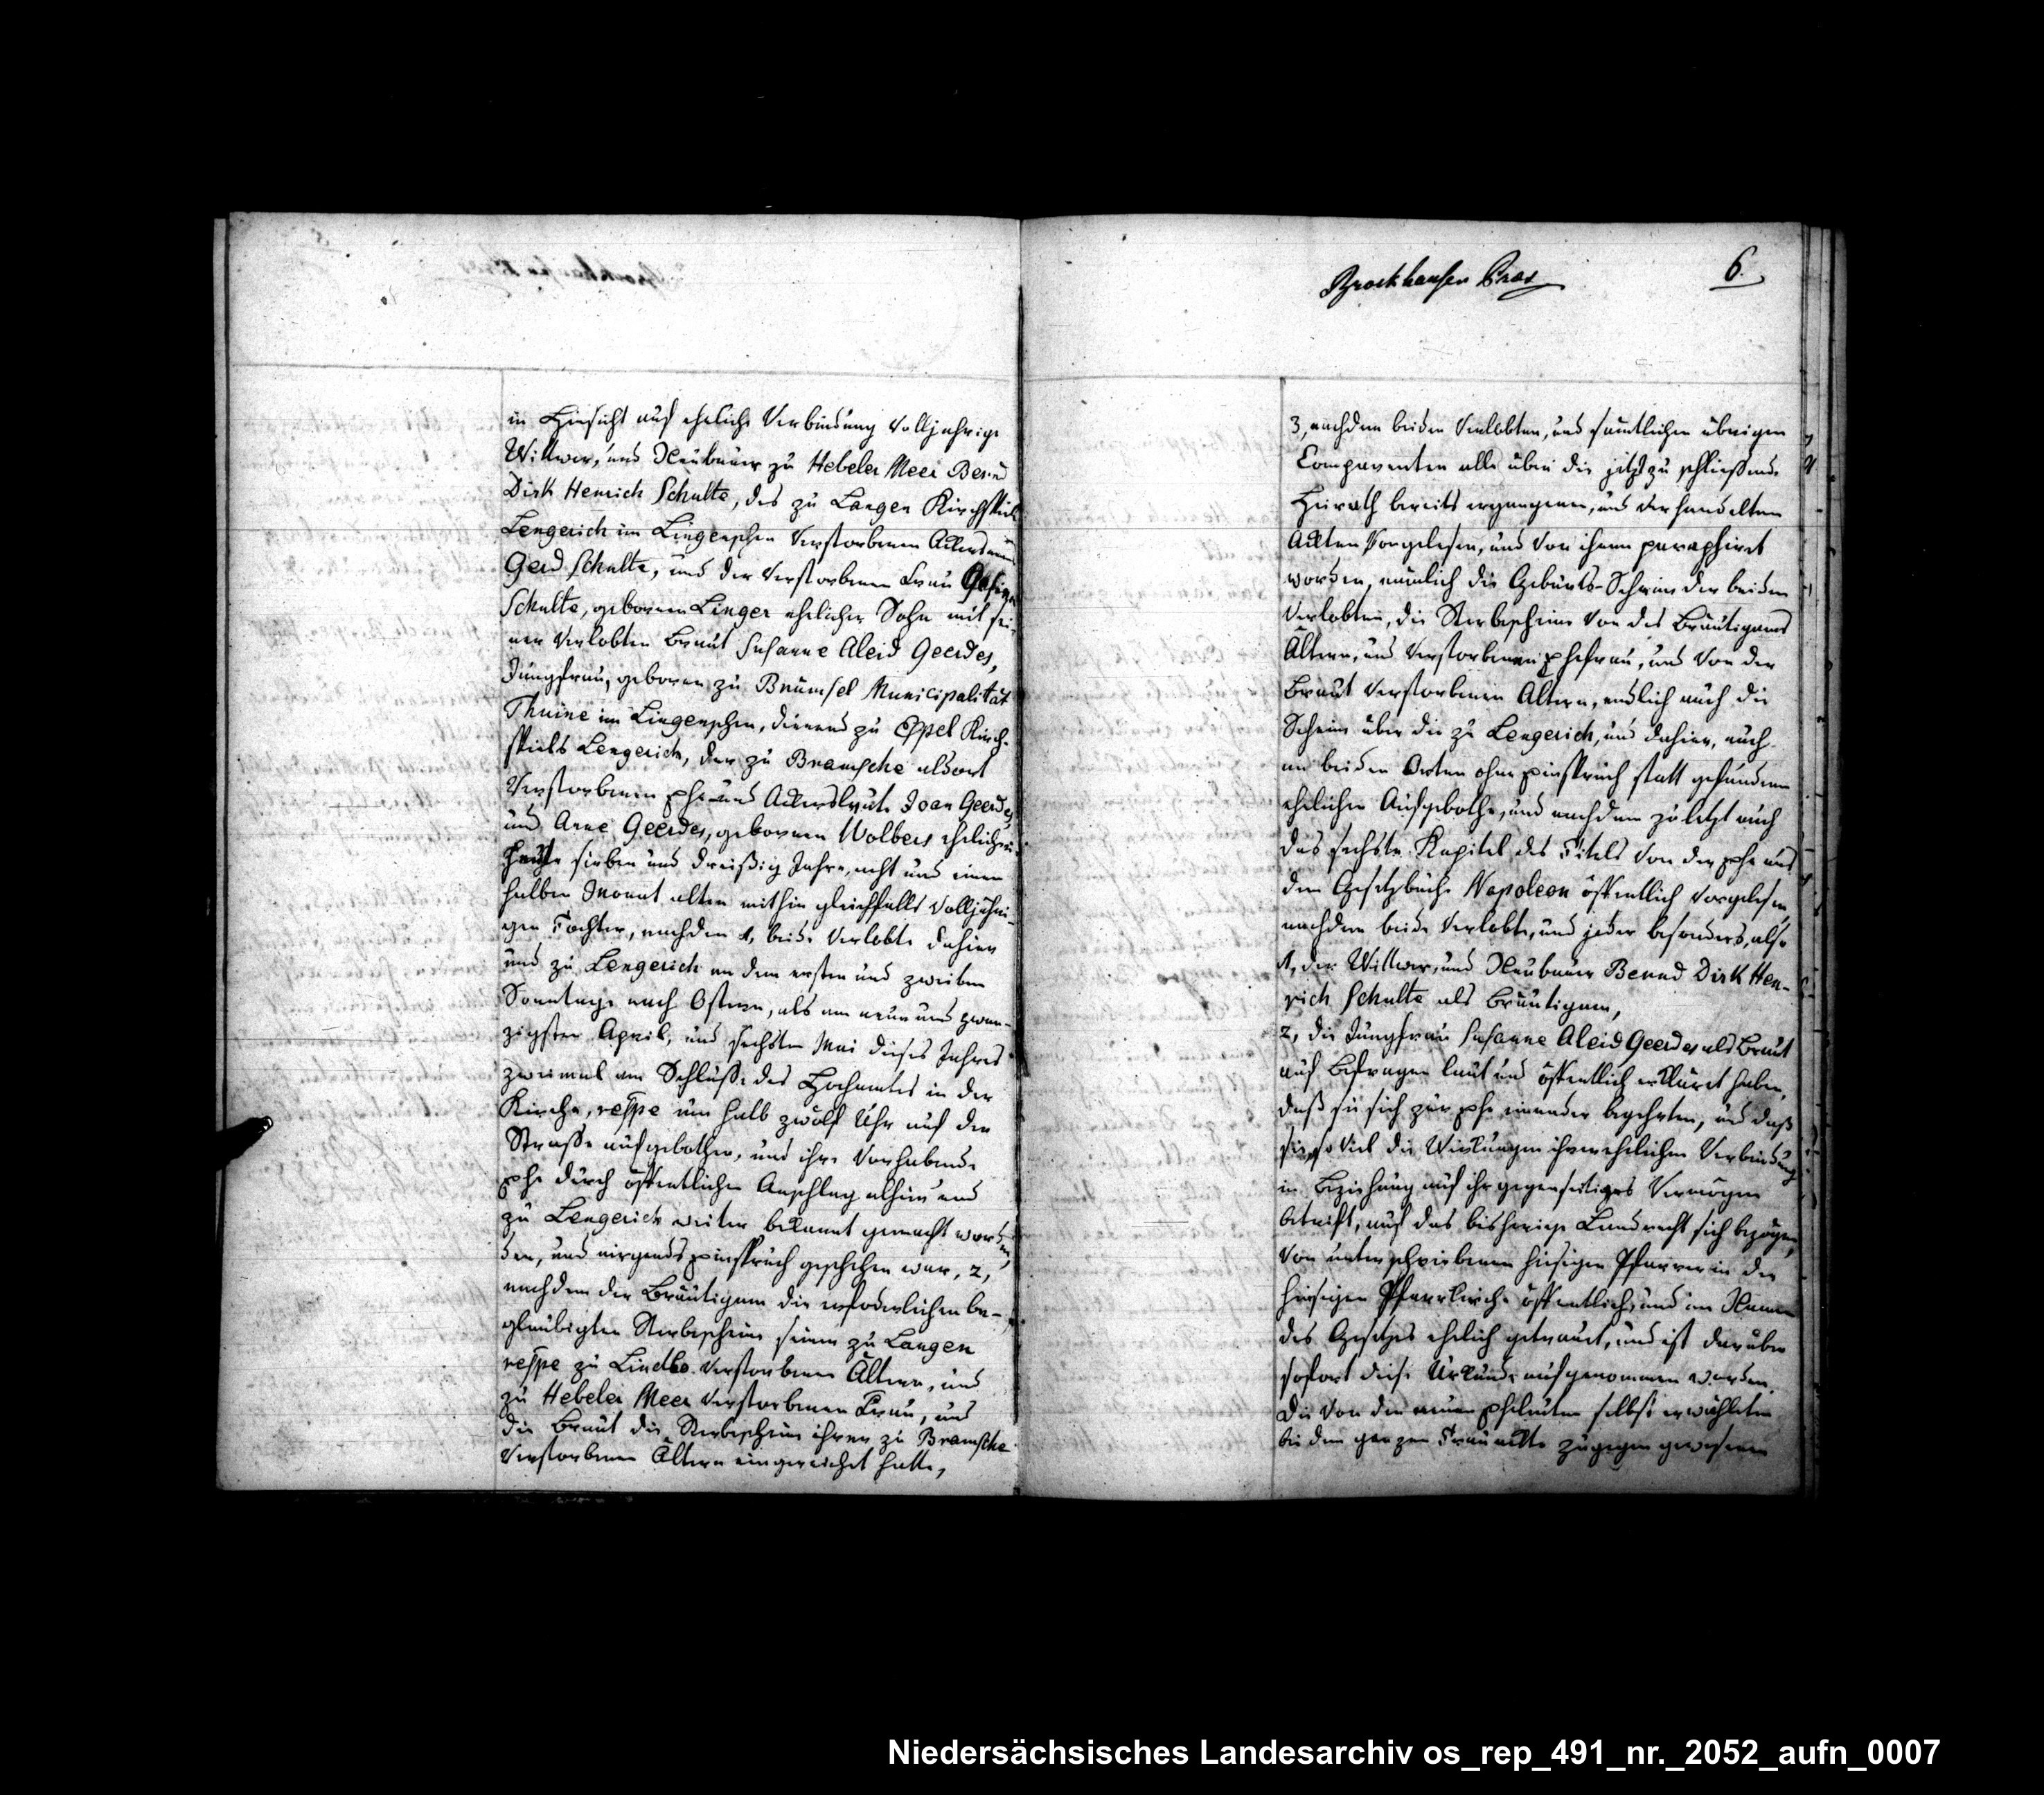 in Hinsicht auf eheliche Verbindung volljahrige
Wittwer, und Neubauer zu Hebeler Meer Bernd
Dirk Henrich Schulte, des zu Langen Kirchspiels
Lengerich im Lingenschen verstorbenen Ackersmann
Gerd Schulte, und der verstorbenen Frau Gesina
Schulte, gebornen Linger ehelicher Sohn mit sei-
ner verlobten Braut Susanne Aleid Geerdes,
Jungfrau, geboren zu Brümsel Municipalität
Thuine im Lingenschen, dienend zu Espel Kirch-
spiels Lengerich, der zu Bramsche aldort
verstorbenen Ehe- und Ackersleute Joan Geerdes,
und Anne Geerdes, gebornen Wolbers ehelichen
heute sieben und dreißig Jahre, acht und einen
halben Monat alten mithin gleichfalls volljähri-
gen Tochter, nachdem 1, beide Verlobte dahier
und zu Lengerich an dem ersten und zweiten
Sonntage nach Ostern, als am neun und zwan-
zigsten April, und sechsten Mai dieses Jahres
zweimal am Schlusse des Hochamtes in der
Kirche, respe um halb zwölf Uhr auf der
Strasse aufgebothen, und ihre vorhabende
Ehe durch öffentlichen Anschlag alhier und
zu Lengerich weiter bekannt gemacht wor-
den, und nirgends Einspruch geschehen war, 2,
nachdem der Bräutigam die erforderlichen be-
glaubigten Sterbescheine seiner zu Langen
respe zu Lindloe verstorbenen Ältern, und
zu Hebeler Meer verstorbenen Frau, und
die Braut die Sterbescheine ihrer zu Bramsche
verstorbenen Ältern eingereichet hatte,
Brockhausen Præs
6.
3, nachdem beiden Verlobten, und samtlichen übrigen
Comparenten alle über die jetzt zu schließende
Heirath bereits ergangenen, und verhandelten
Ackten vorgelesen, und von ihnen paraphiret
worden, nämlich die Geburts-Scheine der beiden
Verlobten, die Sterbescheine von des Bräutigams
Ältern, und verstorbenen Ehefrau, und von der
Braut verstorbenen Ältern, endlich auch die
Scheine über die zu Lengerich, und dahier, auch
an beiden Orten ohne Einspruch statt gefundenen
ehelichen Aufgebothe, und nachdem zu letzt auch
das sechste Kapitel des Titels von der Ehe aus
dem Gesetzbuche Napoleon öffentlich vorgelesen,
nachdem beide Verlobte, und jeder besonders, also
1, der Wittwer, und Neubauer Bernd Dirk Hen-
rich Schulte als Bräutigam,
2, die Jungfrau Susanne Aleid Geerdes als Braut
auf Befragen laut und öffentlich erkläret haben,
daß sie sich zur Ehe einander begehrten, und daß
sie, so viel die Wirkungen ihrer ehelichen Verbindung
in Beziehung auf ihr gegenseitiges Vermögen
betrift, auf das bisherige Landrecht sich bezögen,
von unterschriebenen hiesigen Pfarrer in der
hiesigen Pfarrkirche öffentlich, und im Namen
des Gesetzes ehelich getrauet, und ist darüber
sofort diese Urkunde aufgenommen worden.
Die von den neuen Eheleuten selbst erwählten
bei dem ganzen Trauackte zugegen gewesenen
Niedersächsisches Landesarchiv os_rep_491_nr._2052_aufn_0007